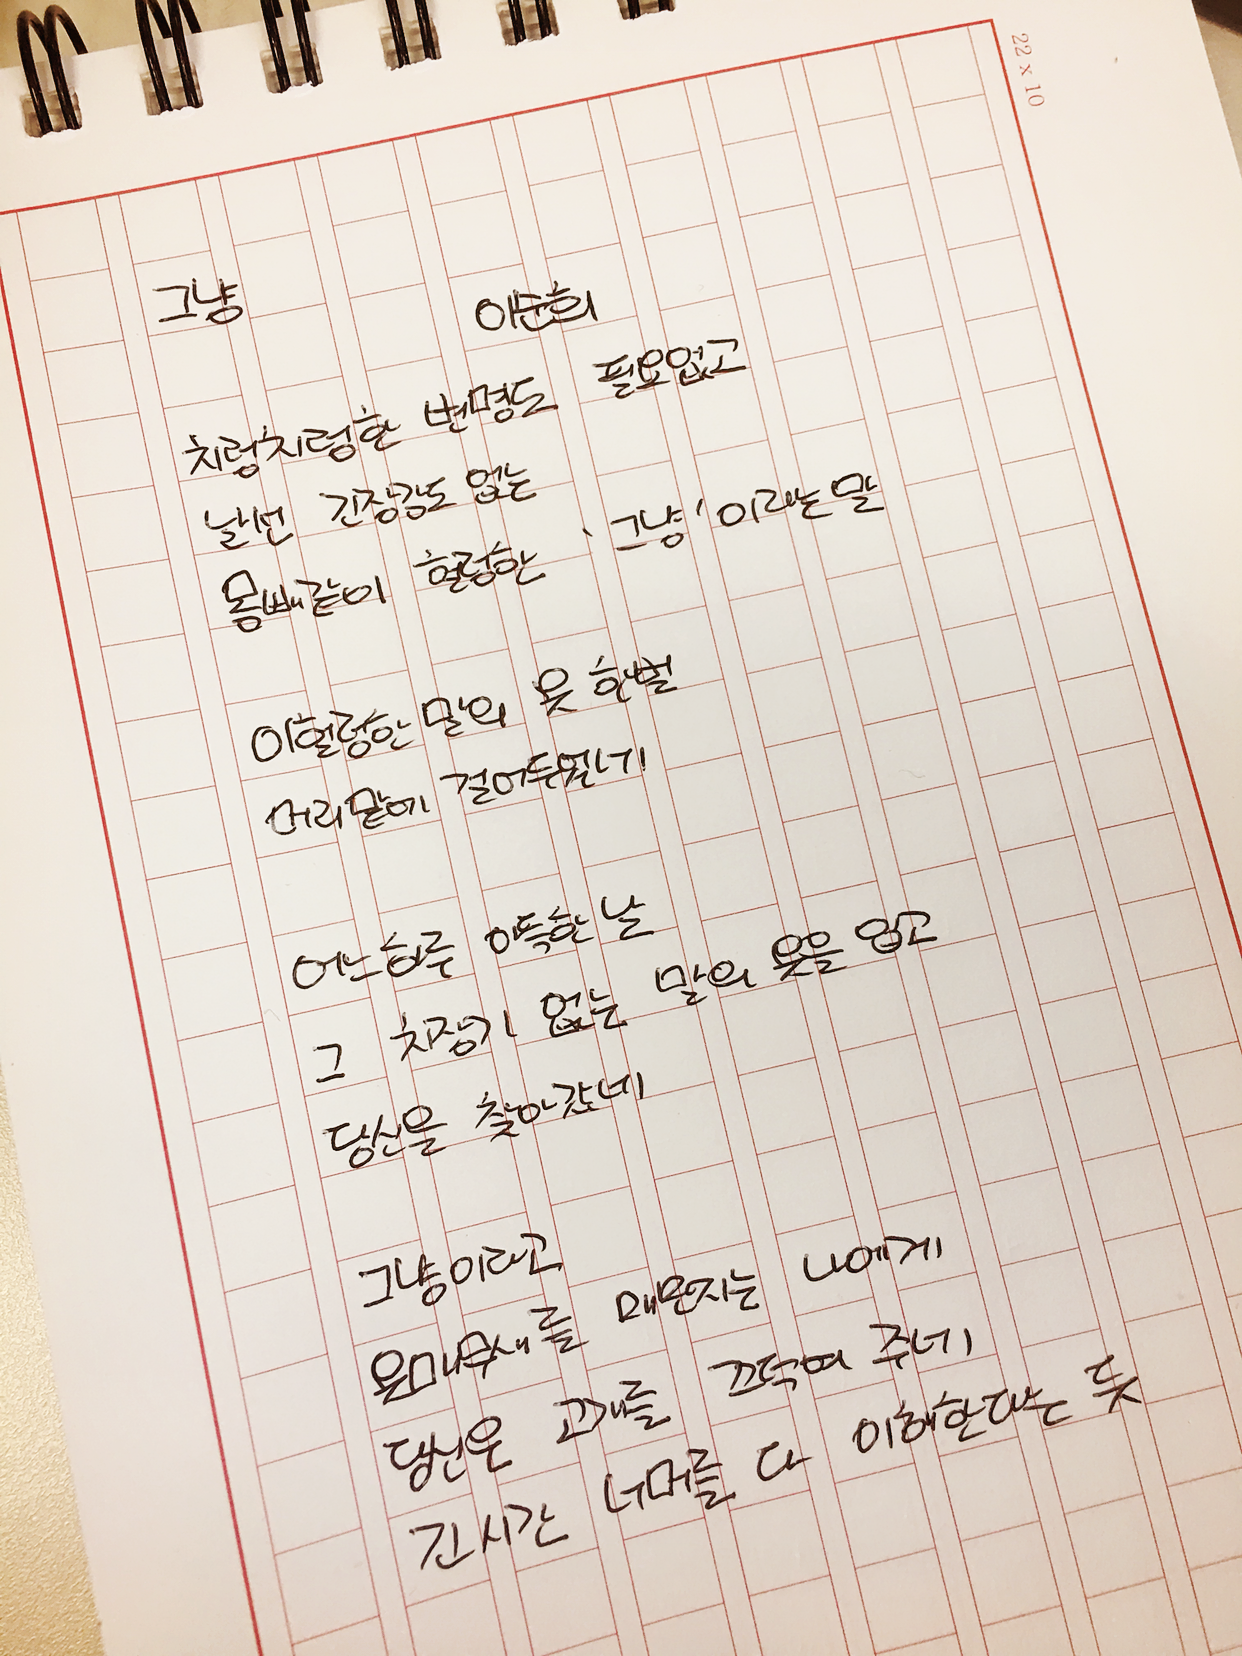 22 x 10
그냥 이순희
치렁치렁한 변명도 필요없고
날선 긴장감도 없는
몸빼같이 헐렁한 '그냥'이라는 말
이 헐렁한 말의 옷 한벌
머리맡에 걸어두었네
어느하루 이득한 날
그 치장기 없는 말의 옷을 입고
당신을 찾아갔네
그냥이라고
옷매무새를 매만지는 나에게
당신은 고개를 끄덕여 주네
긴 시간 너머를 다 이해한다는 듯